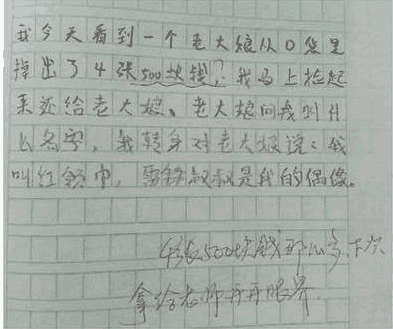 我今天看到一个老大娘从0袋里
掉出了4张500块钱,我马上捡起
来还给老大娘、老大娘问我叫什
么名字,我转身对老大娘说:我
叫红领巾,雷锋叔叔是我的偶像。
4张500块钱那么多,下次
拿给老师开开眼界.